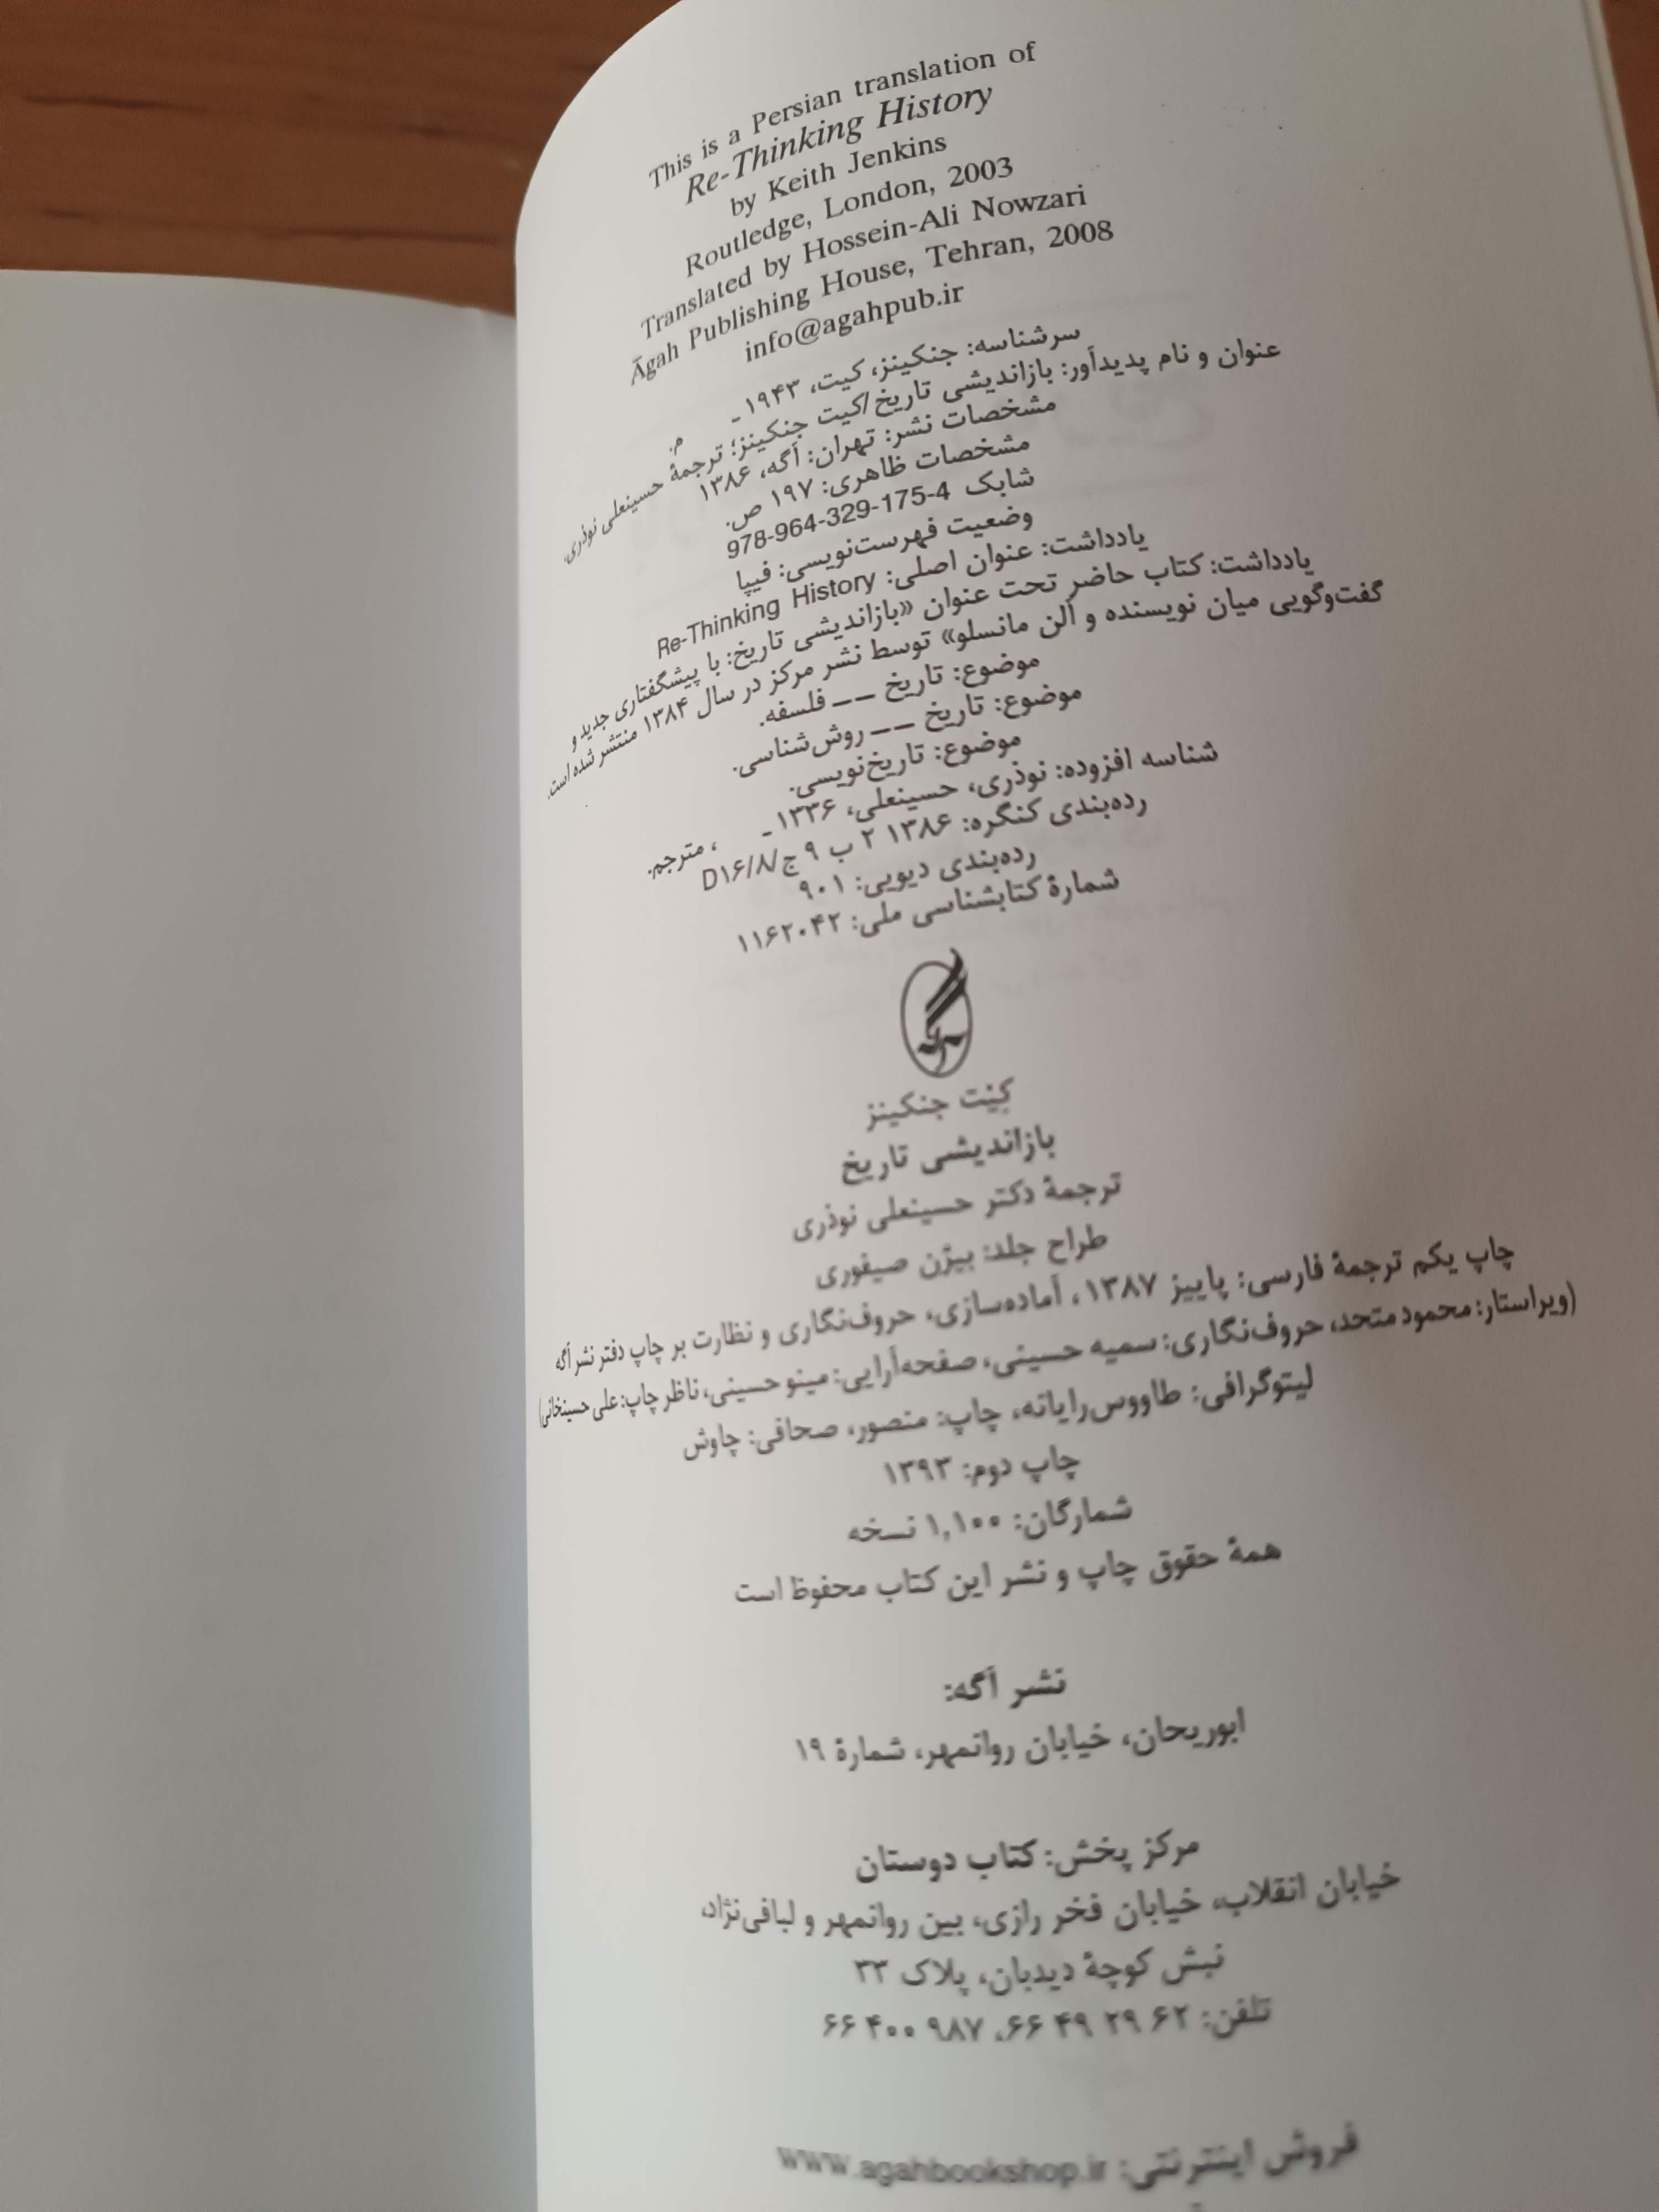 This is a Persian translation of
Re-Thinking History
by Keith Jenkins
Routledge, London, 2003
Translated by Hossein-Ali Nowzari
Āgah Publishing House, Tehran, 2008
info@agahpub.ir
سرشناسه: جنکینز، کیت، ۱۹۴۳ـ م.
عنوان و نام پدیدآور: بازاندیشی تاریخ/کیت جنکینز؛ ترجمهٔ حسینعلی نوذری.
مشخصات نشر: تهران: آگه، ۱۳۸۶
مشخصات ظاهری: ۱۹۷ ص.
شابک 978-964-329-175-4
وضعیت فهرست‌نویسی: فیپا
یادداشت: عنوان اصلی: Re-Thinking History
یادداشت: کتاب حاضر تحت عنوان «بازاندیشی تاریخ: با پیشگفتاری جدید و
گفت‌وگویی میان نویسنده و آلن مانسلو» توسط نشر مرکز در سال ۱۳۸۴ منتشر شده است.
موضوع: تاریخ –– فلسفه.
موضوع: تاریخ –– روش‌شناسی.
موضوع: تاریخ‌نویسی.
شناسه افزوده: نوذری، حسینعلی، ۱۳۳۶ـ ، مترجم.
رده‌بندی کنگره: ۱۳۸۶ ۲ ب ۹ ج/D۱۶/۸
رده‌بندی دیویی: ۹۰۱
شمارهٔ کتابشناسی ملی: ۱۱۶۲۰۴۲
کیْت جنکینز
بازاندیشی تاریخ
ترجمهٔ دکتر حسینعلی نوذری
طراح جلد: بیژن صیفوری
چاپ یکم ترجمهٔ فارسی: پاییز ۱۳۸۷، آماده‌سازی، حروف‌نگاری و نظارت بر چاپ دفتر نشر آگه
(ویراستار: محمود متحد، حروف‌نگاری: سمیه حسینی، صفحه‌آرایی: مینو حسینی، ناظر چاپ: علی حسینخانی)
لیتوگرافی: طاووس‌رایانه، چاپ: منصور، صحافی: چاوش
چاپ دوم: ۱۳۹۳
شمارگان: ۱,۱۰۰ نسخه
همهٔ حقوق چاپ و نشر این کتاب محفوظ است
نشر آگه:
ابوریحان، خیابان روانمهر، شمارهٔ ۱۹
مرکز پخش: کتاب دوستان
خیابان انقلاب، خیابان فخر رازی، بین روانمهر و لبافی‌نژاد،
نبش کوچهٔ دیدبان، پلاک ۳۳
تلفن: ۶۲ ۲۹ ۴۹ ۶۶، ۹۸۷ ۴۰۰ ۶۶
فروش اینترنتی: www.agahbookshop.ir